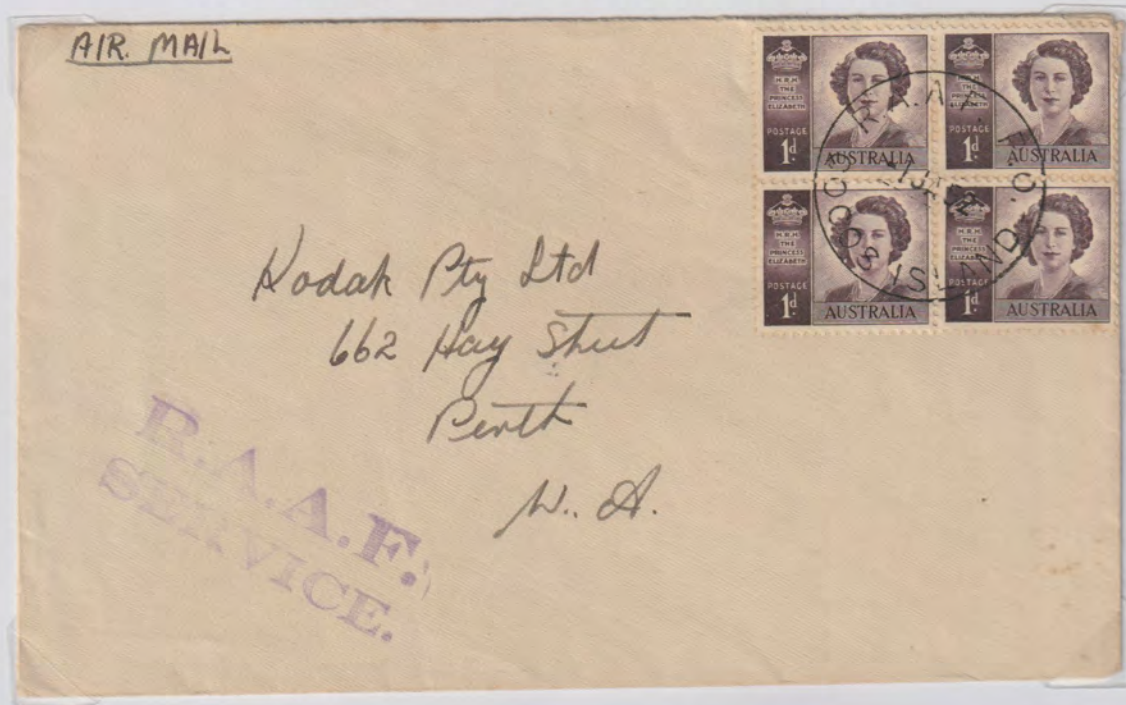 AIR. MAIL
H.R.H.
THE
PRINCESS
ELIZABETH
POSTAGE
1d.
AUSTRALIA
H.R.H.
THE
PRINCESS
ELIZABETH
POSTAGE
1d.
AUSTRALIA
H.R.H.
THE
PRINCESS
ELIZABETH
POSTAGE
1d.
AUSTRALIA
H.R.H.
THE
PRINCESS
ELIZABETH
POSTAGE
1d.
AUSTRALIA
R.A.A.F. P.O.
COCOS ISLAND
JA 52
Kodak Pty Ltd
662 Hay Street
Perth
W. A.
R.A.A.F.
SERVICE.